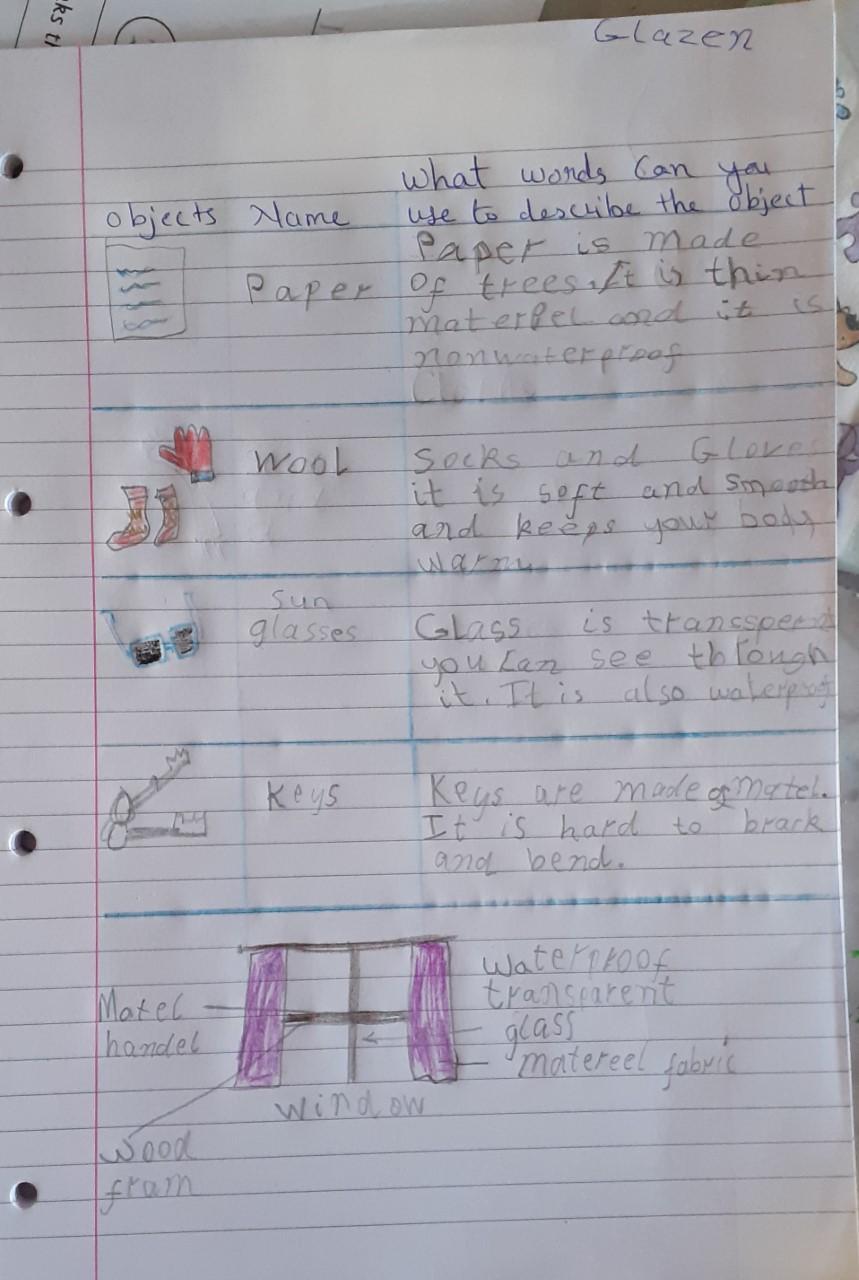 Glazen
what words can you
objects Name use to describe the object
Paper is made
Paper of trees. It is thin
matereel and it is
nonwaterproof
Wool Socks and Glove
it is soft and smooth
and keeps your body
warm
Sun
glasses Glass is transpeent
you can see through
it. It is also waterproof
Keys Keys are made of matel.
It is hard to brack
and bend.
waterproof
transparent
Matel glass
handel matereel fabric
window
wood
fram